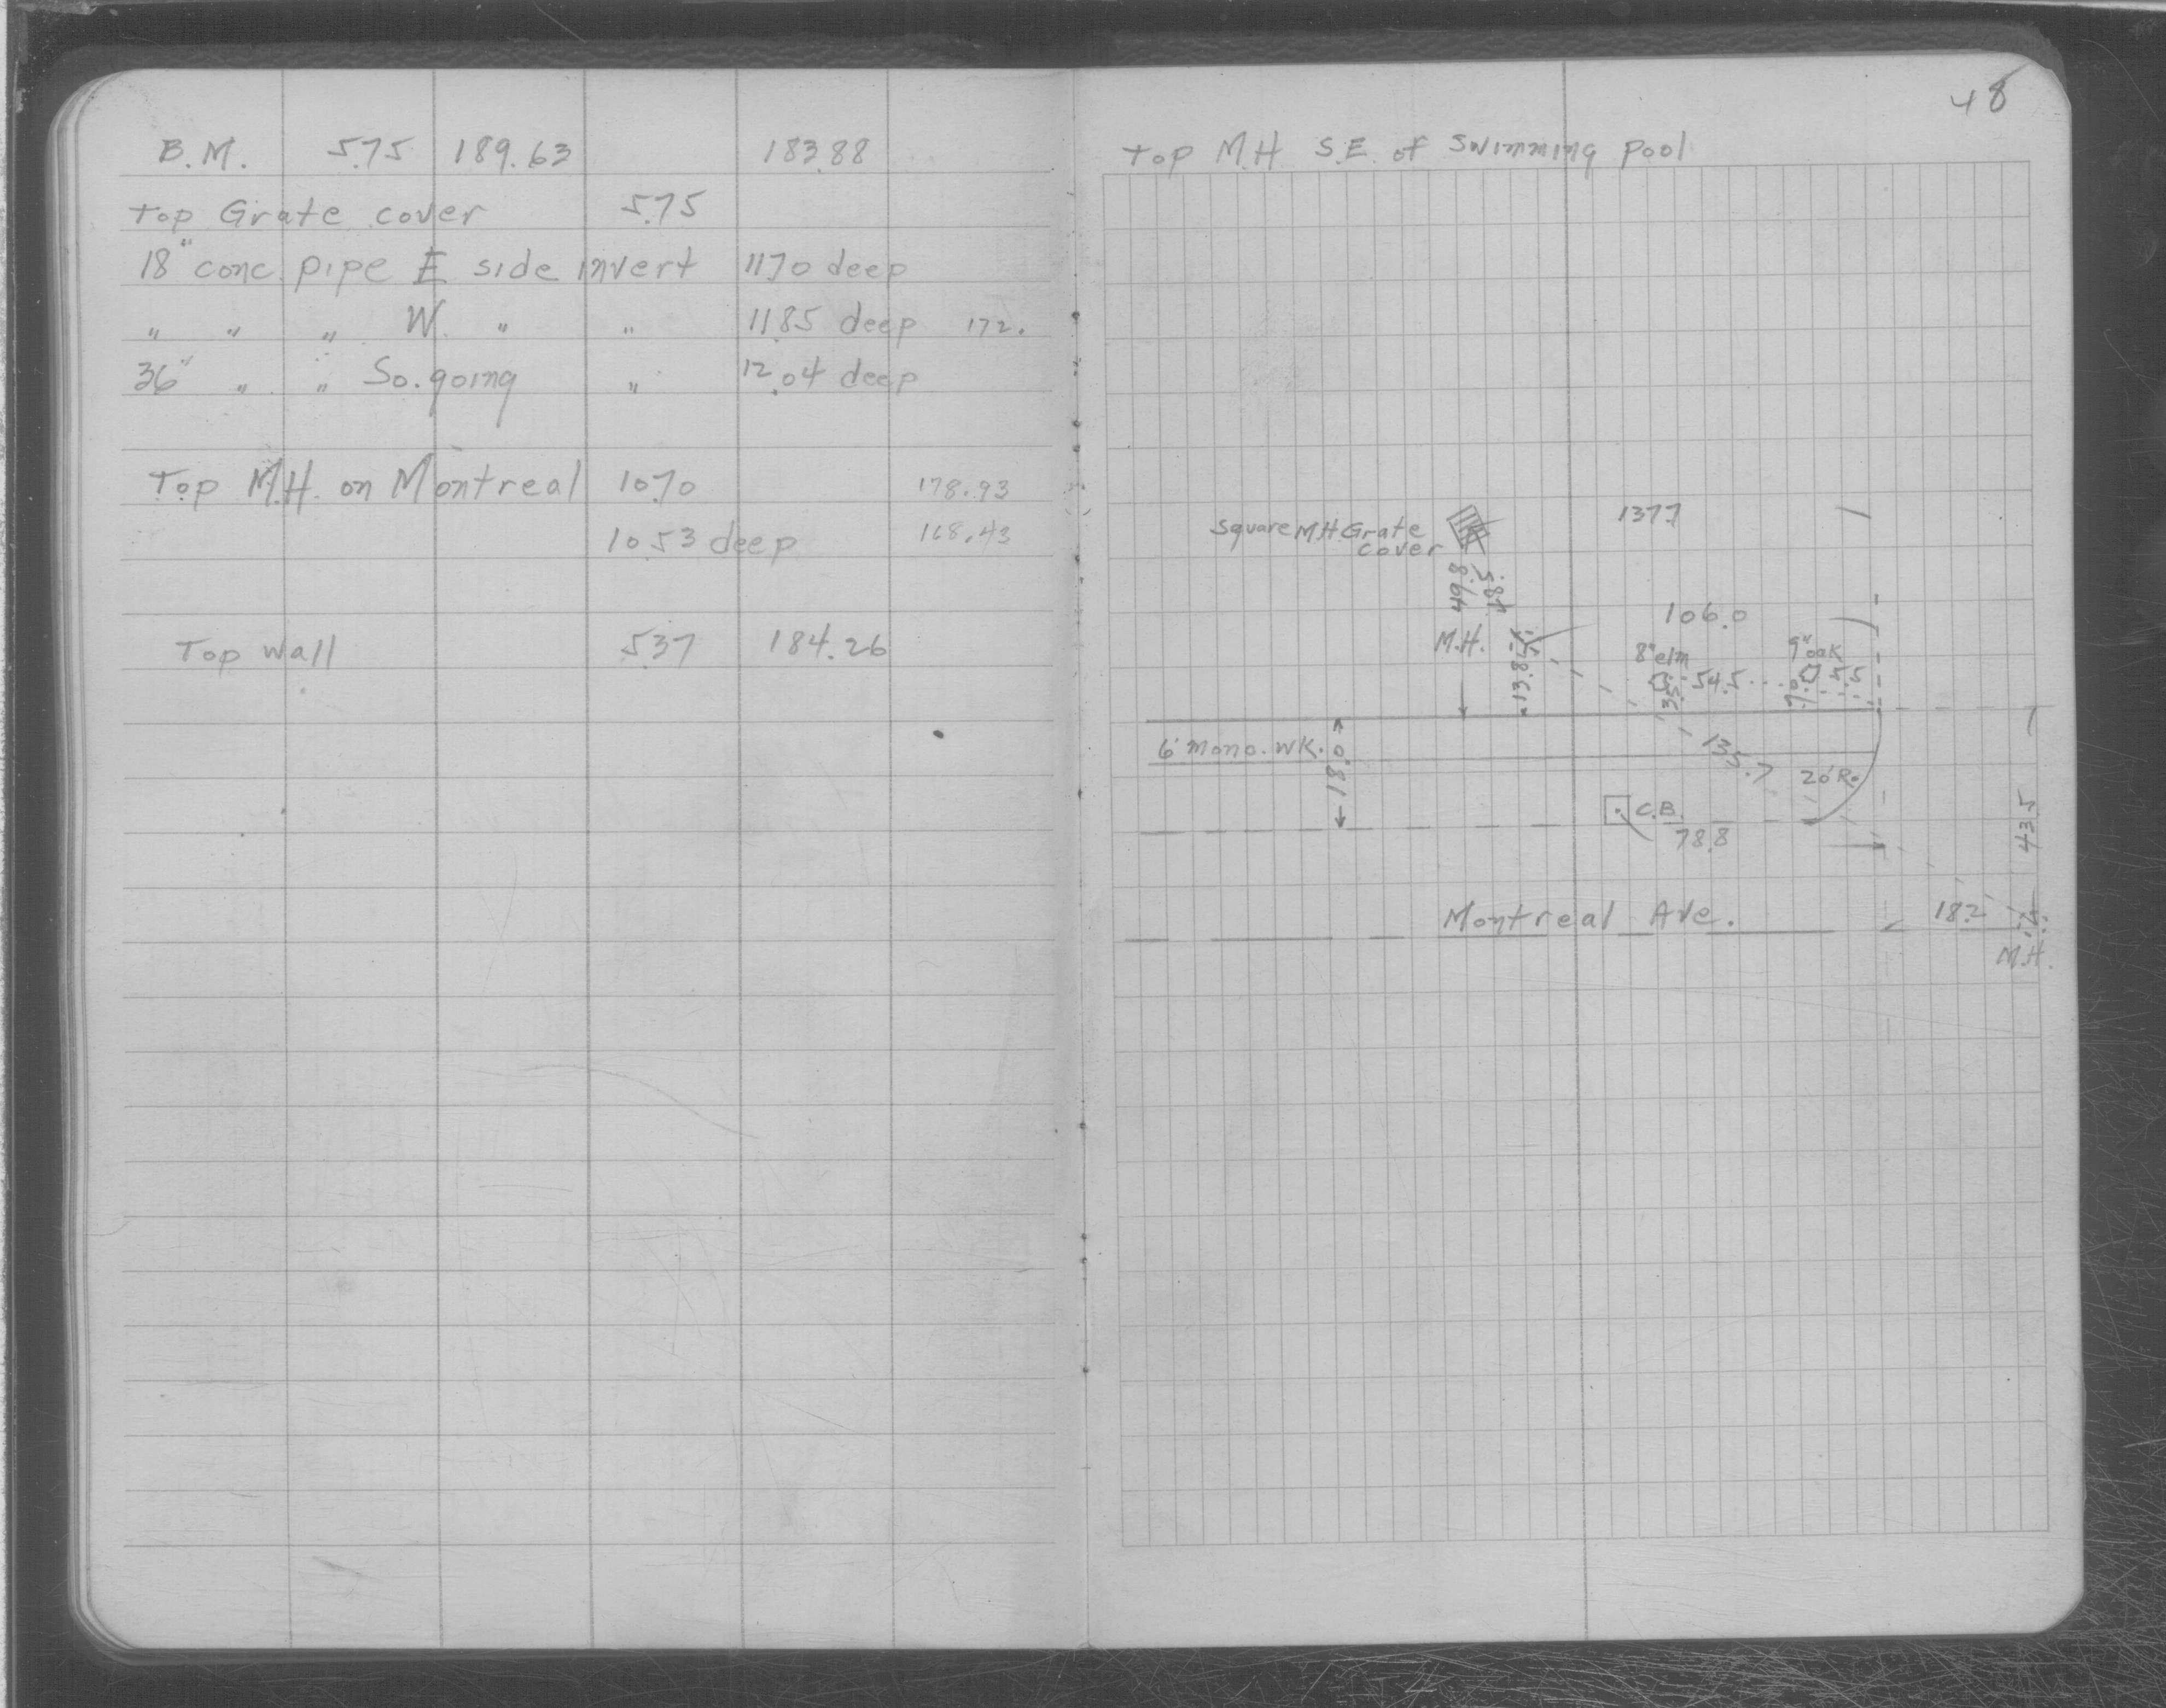 B.M. 5.75 189.63 183.88
Top Grate cover 5.75
18" conc. pipe E side invert 11.70 deep
" " " W. " " 11.85 deep 172.
36" " " So. going " 12.04 deep
Top M.H. on Montreal 10.70 178.93
10.53 deep 168.43
Top wall 5.37 184.26
48
Top M.H S.E. of Swimming Pool
Square M.H. Grate cover
137.7
49.8
48.5
106.0
M.H.
13.8
8" elm
9" oak
54.5
5.5
3.5
7.0
6' mono. wk.
18.0
135.7
20' R.
C.B.
78.8
43.5
Montreal Ave.
18.2
M.H.